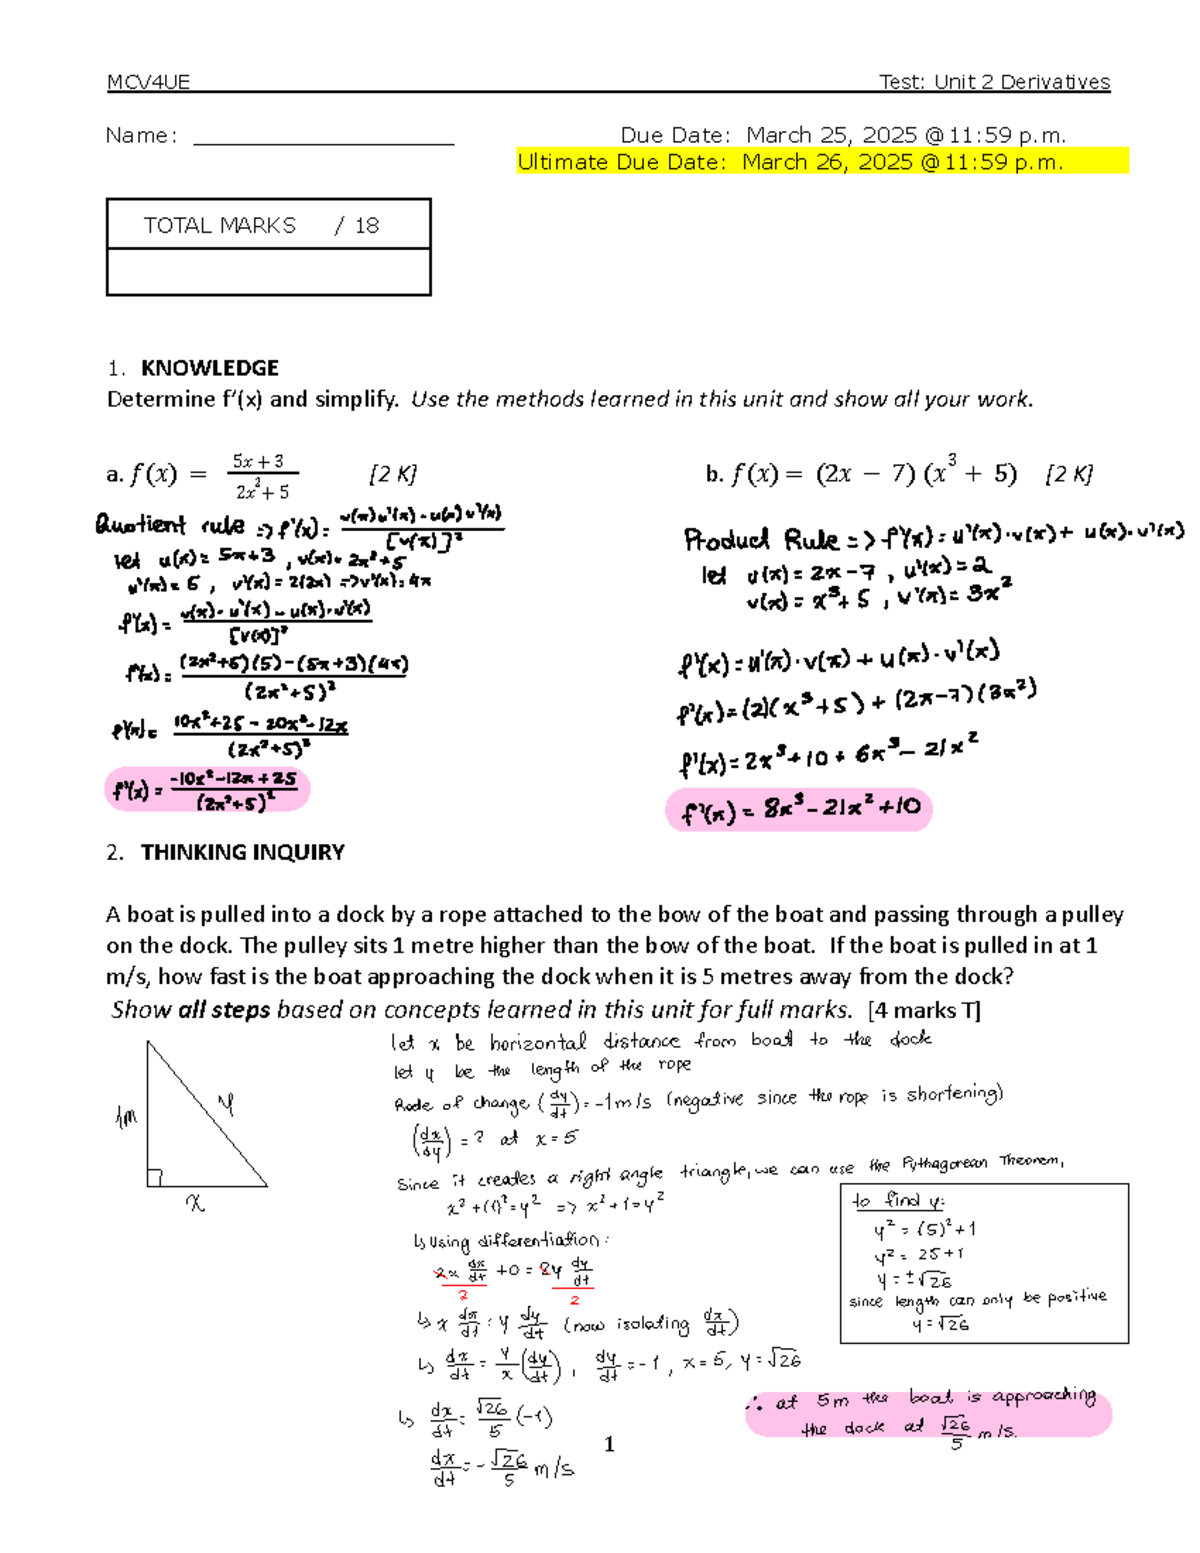 MCV4UE Test: Unit 2 Derivatives
Name: ____________________ Due Date: March 25, 2025 @ 11:59 p.m.
Ultimate Due Date: March 26, 2025 @ 11:59 p.m.
TOTAL MARKS / 18
1. KNOWLEDGE
Determine f'(x) and simplify. Use the methods learned in this unit and show all your work.
a. f(x) = (5x + 3)/(2x² + 5) [2 K]
Quotient rule => f'(x) = (v(x)u'(x) - u(x)v'(x))/[v(x)]²
let u(x) = 5x+3, v(x) = 2x²+5
u'(x) = 5, v'(x) = 2(2x) => v'(x) = 4x
f'(x) = (v(x)·u'(x) - u(x)·v'(x))/[v(x)]²
f'(x) = ((2x²+5)(5) - (5x+3)(4x))/(2x²+5)²
f'(x) = (10x²+25 - 20x² - 12x)/(2x²+5)²
f'(x) = (-10x² - 12x + 25)/(2x²+5)²
b. f(x) = (2x − 7) (x³ + 5) [2 K]
Product Rule => f'(x) = u'(x)·v(x) + u(x)·v'(x)
let u(x) = 2x-7, u'(x) = 2
v(x) = x³+5, v'(x) = 3x²
f'(x) = u'(x)·v(x) + u(x)·v'(x)
f'(x) = (2)(x³+5) + (2x-7)(3x²)
f'(x) = 2x³+10 + 6x³ - 21x²
f'(x) = 8x³ - 21x² + 10
2. THINKING INQUIRY
A boat is pulled into a dock by a rope attached to the bow of the boat and passing through a pulley
on the dock. The pulley sits 1 metre higher than the bow of the boat. If the boat is pulled in at 1
m/s, how fast is the boat approaching the dock when it is 5 metres away from the dock?
Show all steps based on concepts learned in this unit for full marks. [4 marks T]
1m
y
x
let x be horizontal distance from boat to the dock
let y be the length of the rope
Rate of change (dy/dt) = -1m/s (negative since the rope is shortening)
(dx/dy) = ? at x = 5
Since it creates a right angle triangle, we can use the Pythagorean Theorem,
x² + (1)² = y² => x² + 1 = y²
↳ Using differentiation:
2x dx/dt + 0 = 2y dy/dt
2 2
↳ x dx/dt = y dy/dt (now isolating dx/dt)
↳ dx/dt = y/x (dy/dt), dy/dt = -1, x = 5, y = √26
↳ dx/dt = √26/5 (-1)
dx/dt = -√26/5 m/s
to find y:
y² = (5)² + 1
y² = 25 + 1
y = ±√26
since length can only be positive
y = √26
∴ at 5m the boat is approaching
the dock at √26/5 m/s.
1